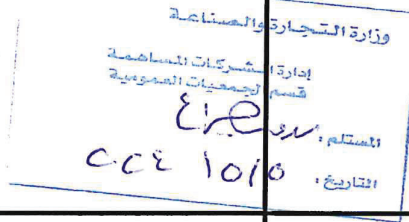 وزارة التجارة والصناعة
إدارة الشركات المساهمة
قسم الجمعيات العمومية
المستلم:
التاريخ: ٥/٥/٢٠٢٤